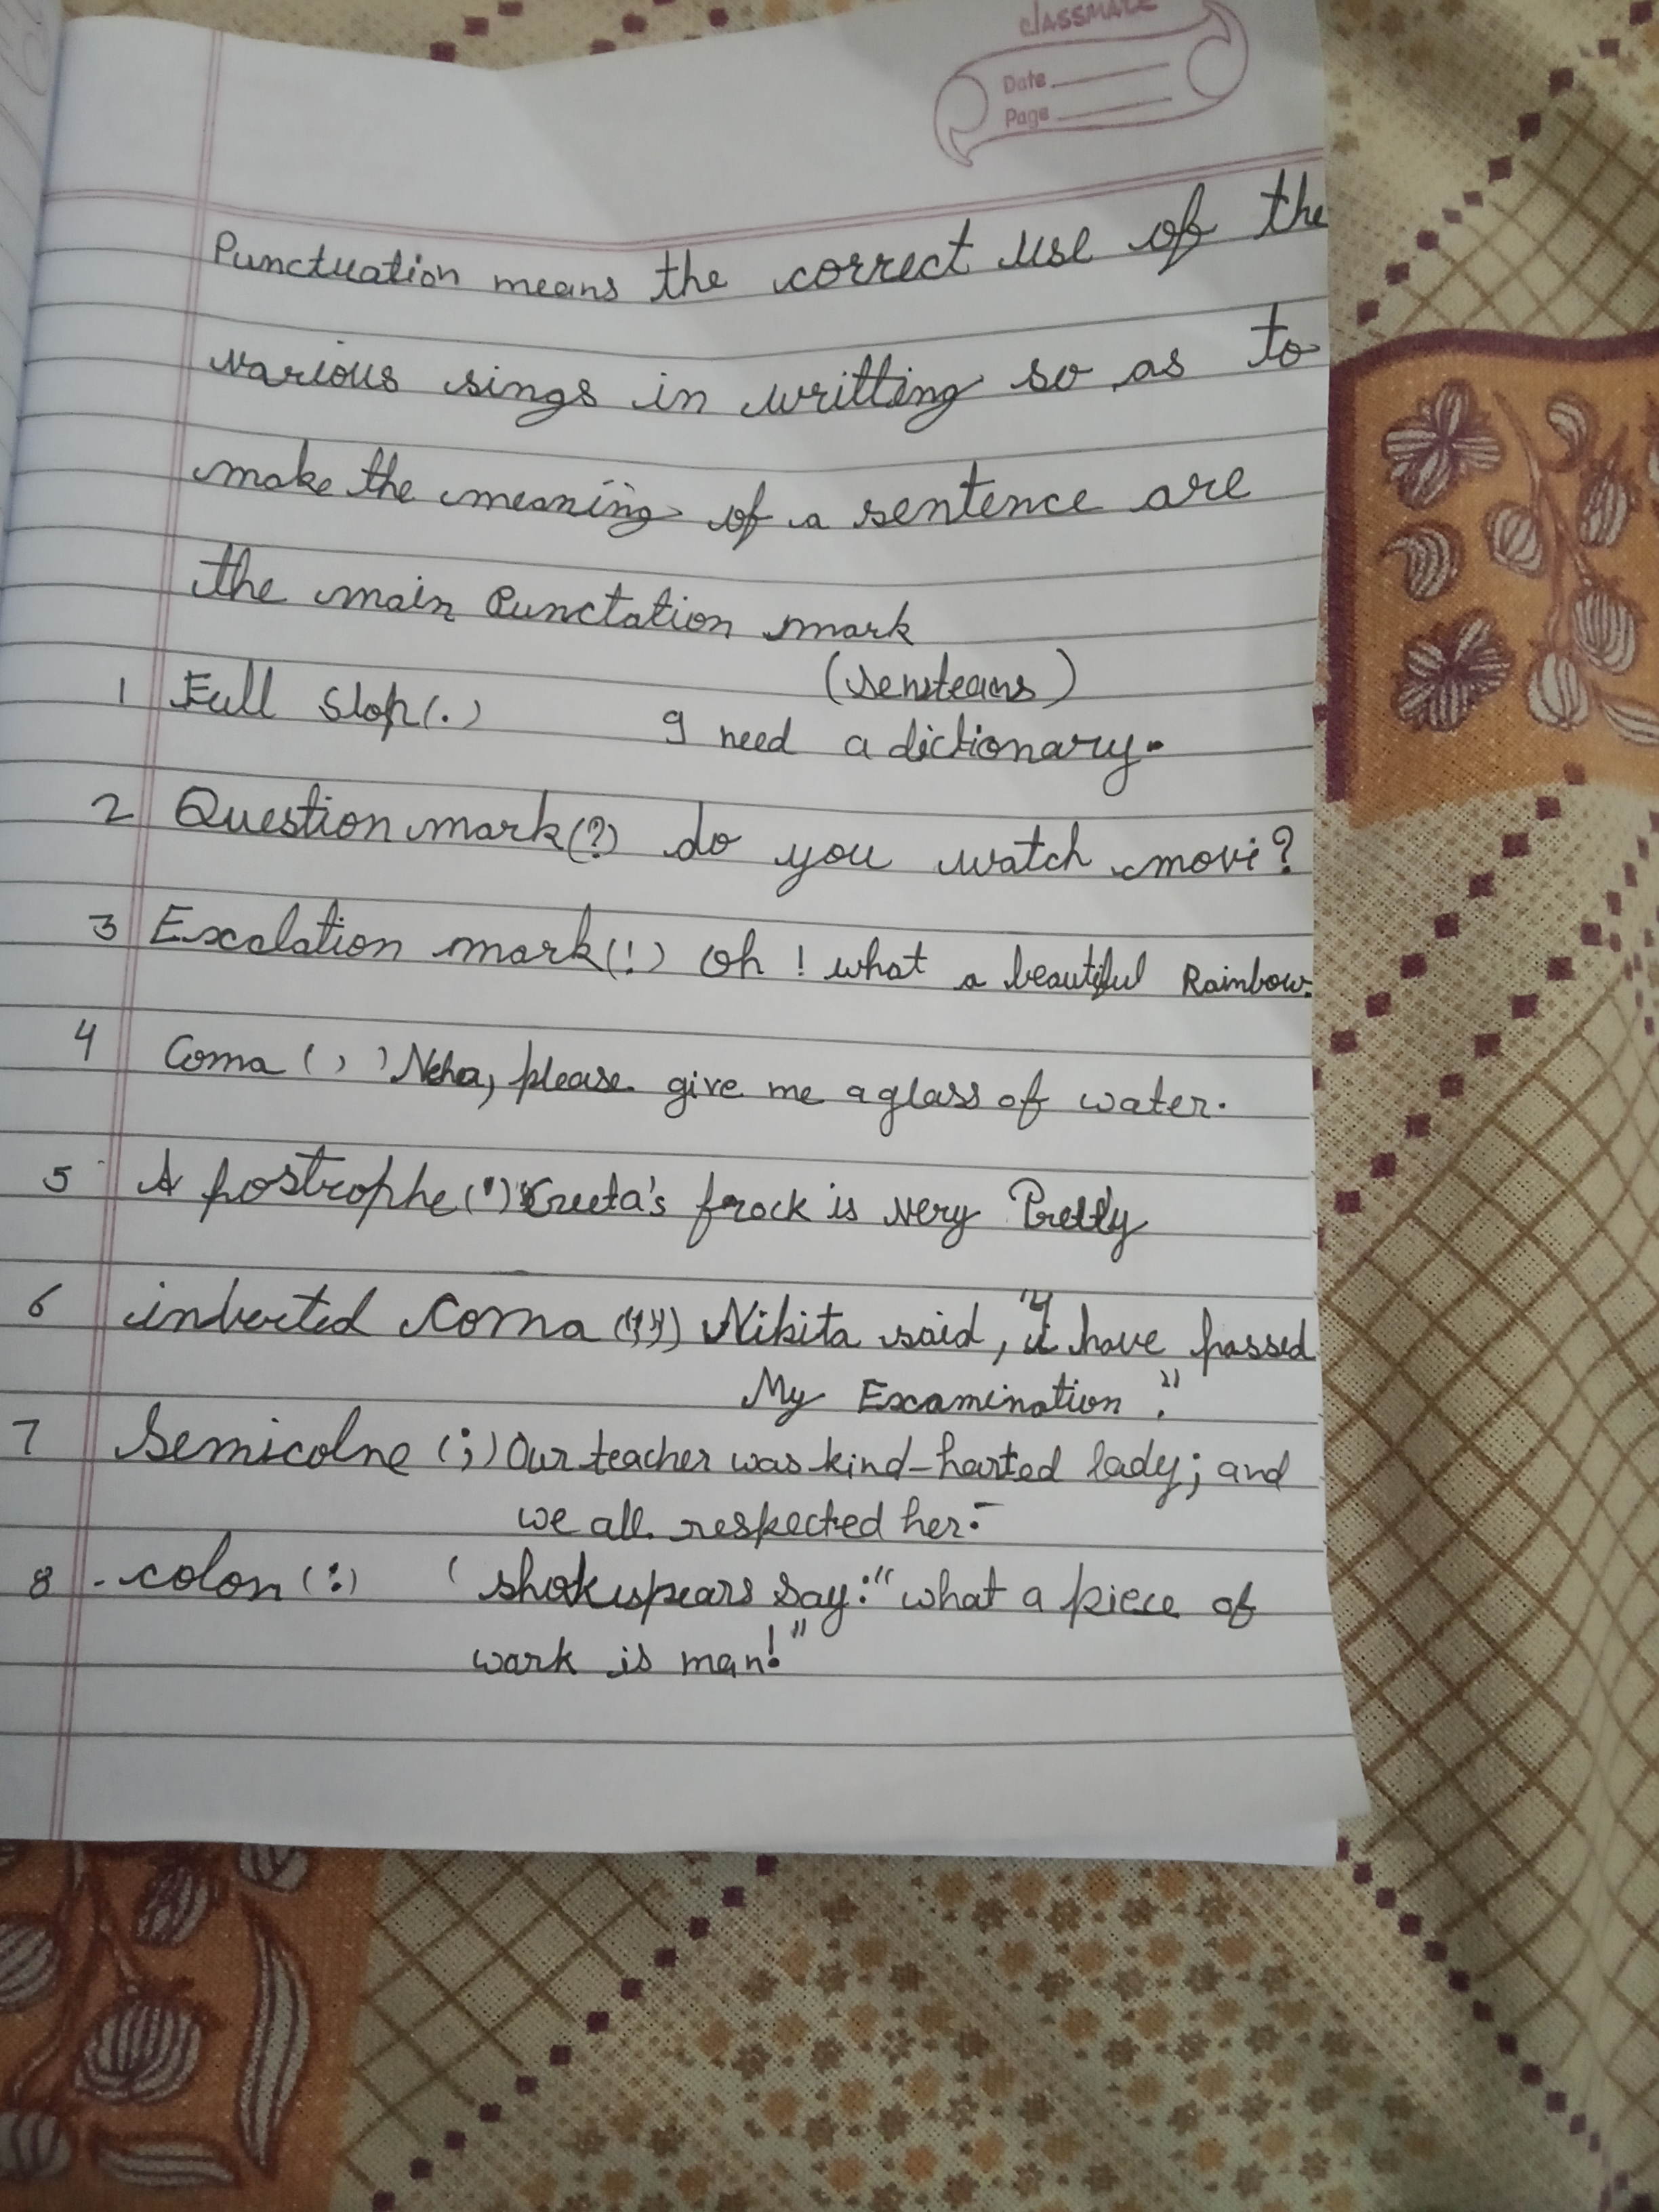 classmate
Date
Page
Punctuation means the correct use of the
various sings in writting so as to
make the meaning of a sentence are
the main Punctation mark
(sensteans)
1 Full Stop(.) I need a dictionary.
2 Question mark(?) do you watch movi?
3 Escalation mark(!) Oh ! what a beautiful Rainbow.
4 Coma ( , ) Neha, please give me a glass of water.
5 A postrophe(') Greeta's frock is very Pretty
6 inverted Coma ("") Nikita said, "I have passed
My Examination."
7 Semicolne (;) Our teacher was kind-harted lady; and
we all respected her.
8 - colon (:) ( shokespears say:"what a piece of
wark is man!"